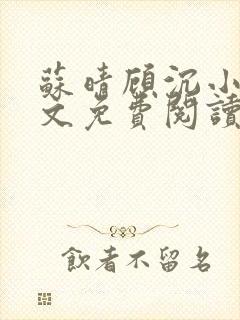 蘇晴顾沉小
文免費閱讀
飲者不留名